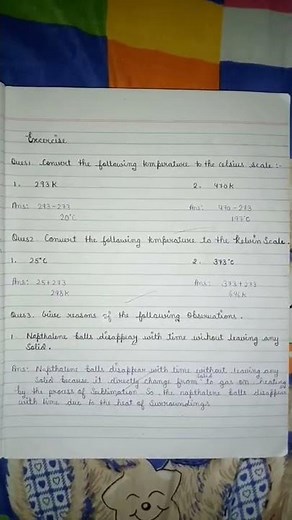 Excercise
Ques1. Convert the following temperature to the celsius scale :-
1. 293K 2. 470K
Ans: 293-273 Ans: 470-273
20°C 197°C
Ques2. Convert the following temperature to the Kelvin Scale.
1. 25°C 2. 373°C
Ans: 25+273 Ans: 373+273
298K 646K
Ques3. Give reasons of the following Observations.
1. Napthalene balls disappear with time without leaving any
Solid.
Ans: Napthalene balls disappear with time without leaving any
solid because it directly change from solid to gas on heating
by the process of Sublimation. So the napthalene balls disappear
with time due to the heat of Surroundings.